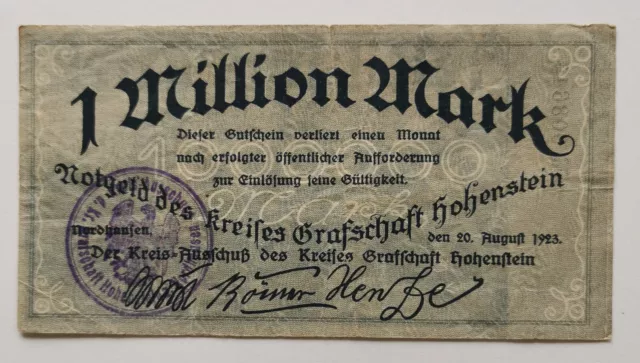 1 Million Mark
Dieser Gutschein verliert einen Monat
nach erfolgter öffentlicher Aufforderung
zur Einlösung seine Gültigkeit.
Notgeld des Kreises Grafschaft Hohenstein
Nordhausen, den 20. August 1923.
Der Kreis-Ausschuß des Kreises Grafschaft Hohenstein
Römer Hentze